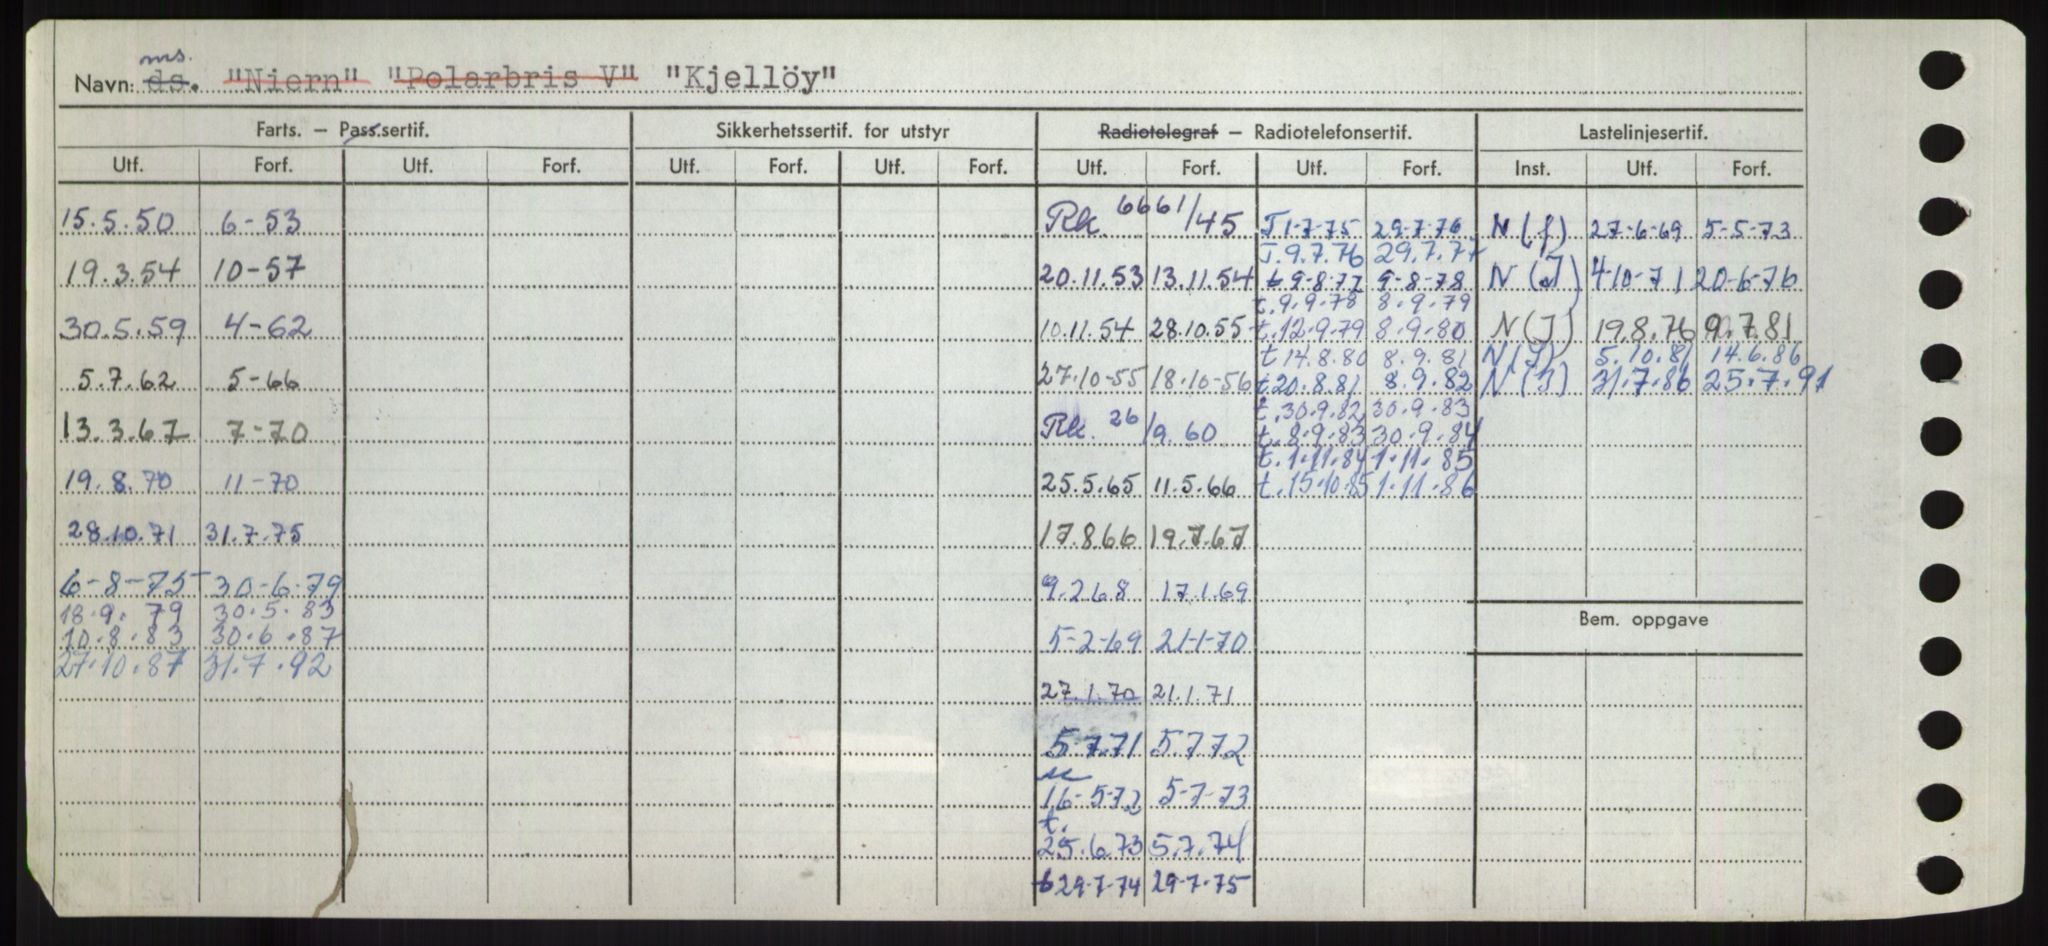 ms.
Navn: ds. "Niern" "Polarbris V" "Kjellöy"
Farts. – Pass.sertif. Sikkerhetssertif. for utstyr Radiotelegraf – Radiotelefonsertif. Lastelinjesertif.
Utf. Forf. Utf. Forf. Utf. Forf. Utf. Forf. Utf. Forf. Utf. Forf. Inst. Utf. Forf.
15.5.50 6-53 Rk. 6661/45 T 1-7-75 29-7-76 N (J) 27-6-69 5-5-73
T.9.7.76 29.7.77
19.3.54 10-57 20.11.53 13.11.54 t 9-8-77 9-8-78 N (J) 4-10-71 20-6-76
t.9.9.78 8.9.79
30.5.59 4-62 10.11.54 28.10.55 t.12.9.79 8.9.80 N (J) 19.8.76 9.7.81
t 14.8.80 8.9.81 N (J) 5.10.81 14.6.86
5.7.62 5-66 27.10-55 18.10-56 t.20.8.81 8.9.82 N (J) 31.7.86 25.7.91
t.30.9.82 30.9.83
13.3.67 7-70 Rk. 26/9.60 t.8.9.83 30.9.84
t.1.11.84 1.11.85
19.8.70 11-70 25.5.65 11.5.66 t.15.10.85 1.11.86
28.10.71 31.7.75 17.8.66 19.7.67
6-8-75 30-6-79 9.2.68 17.1.69
18.9.79 30.5.83
Bem. oppgave
10.8.83 30.6.87 5-2-69 21-1-70
27.10.87 31.7.92
27.1.70 21.1.71
5.7.71 5.7.72
16-5-72 5-7-73
t.
25.6.73 5.7.74
t 29-7-74 29-7-75